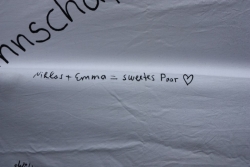 nnscha
Niklas + Emma = sweetes Paar ♡